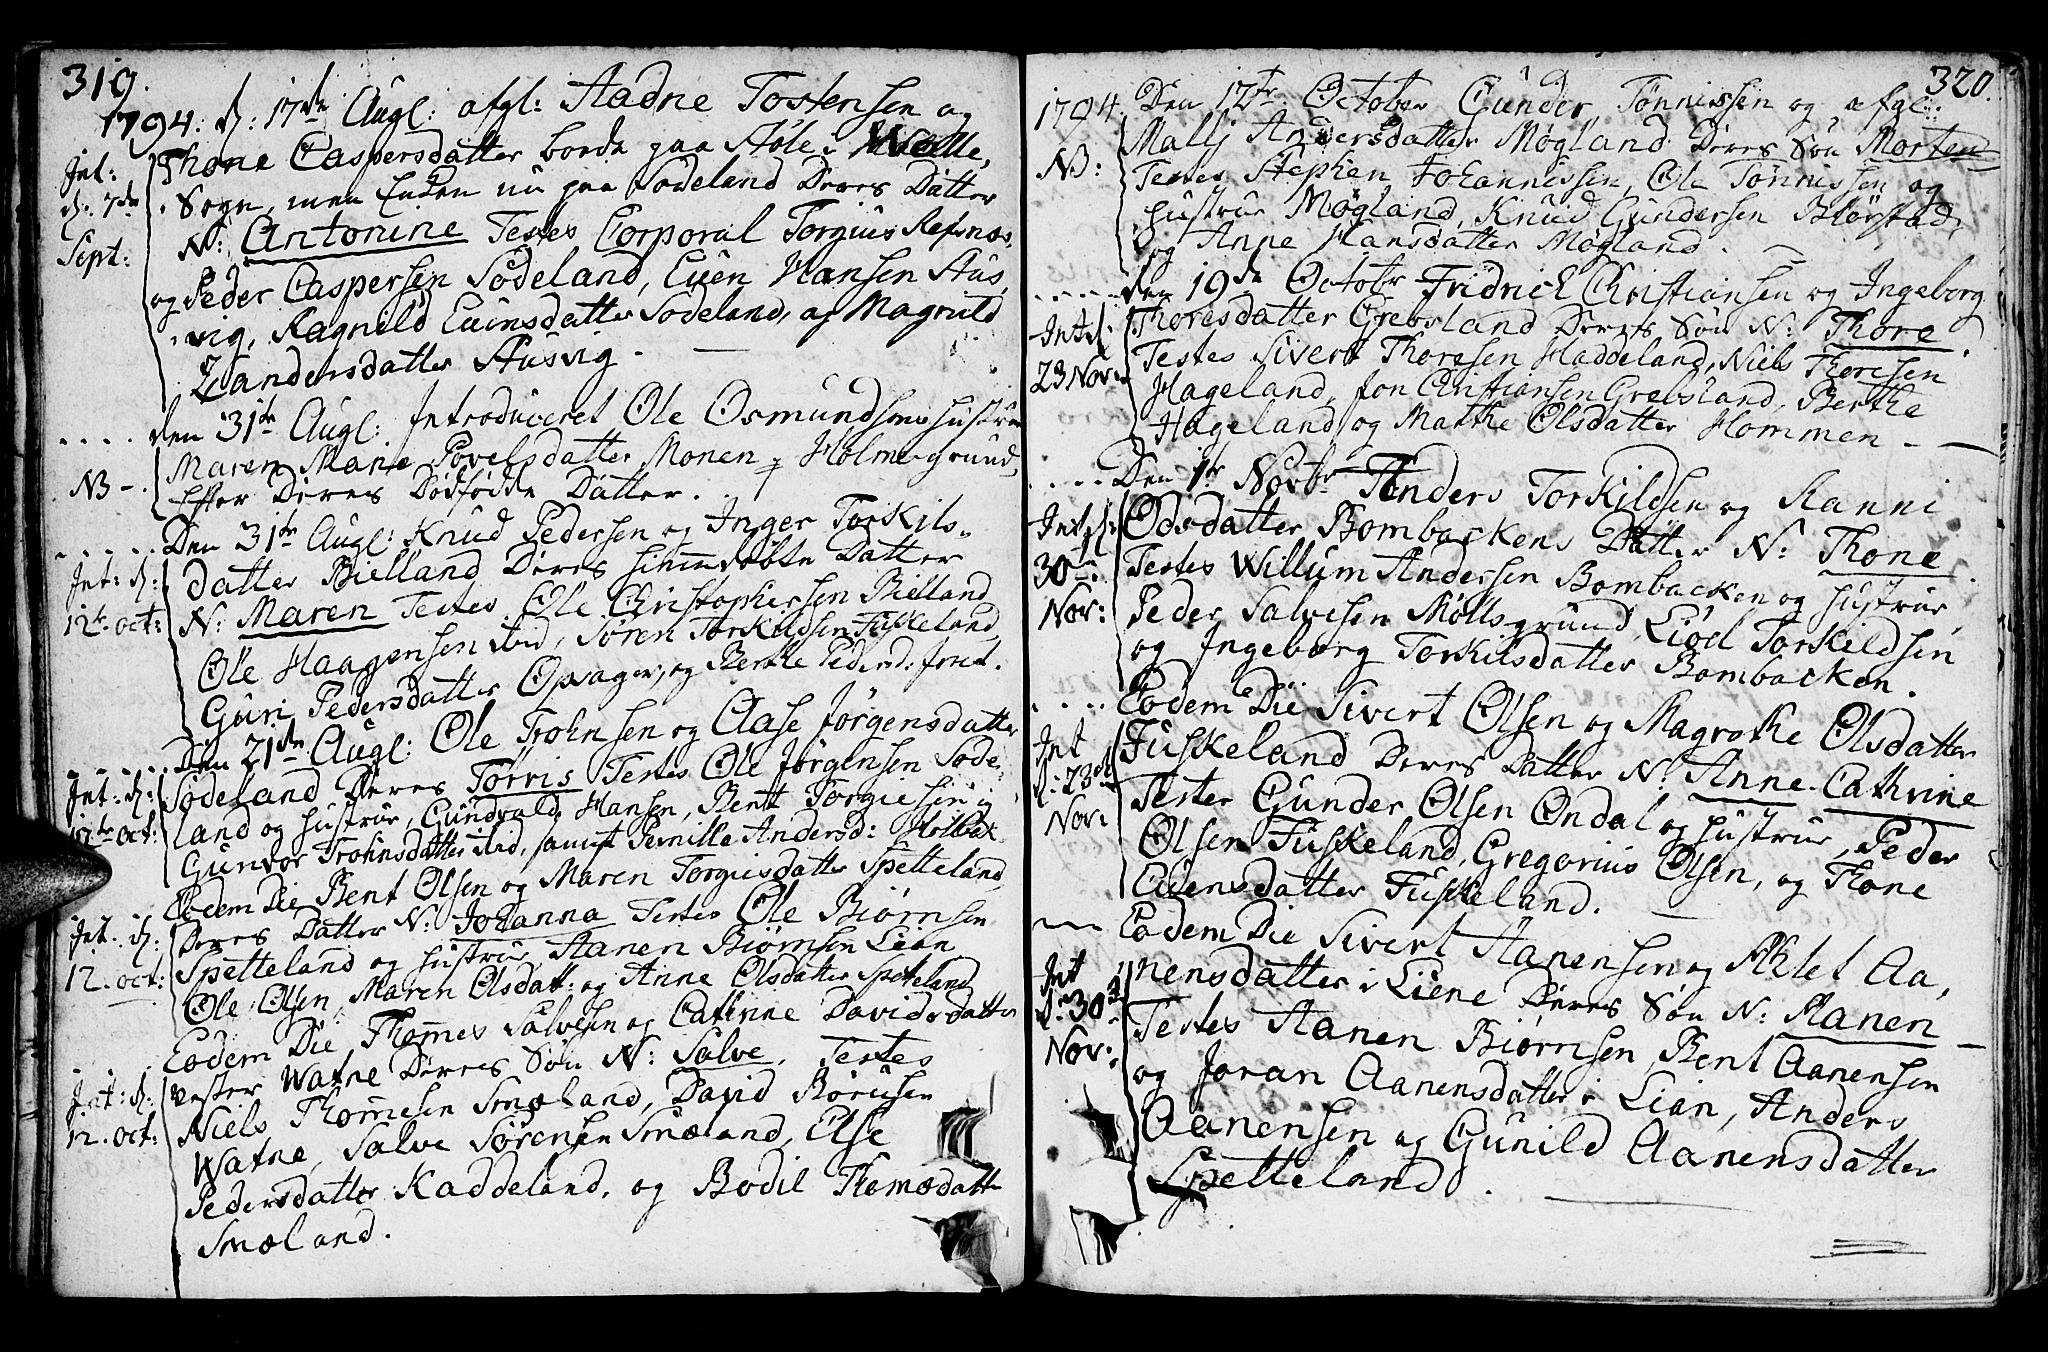 319.
1794. d: 17de Augl: afgl: Aadne Tostensen og
Int: d. 7de Sept:
Thone Caspersdatter borde paa Stöle i Wolle,
Sogn, men Enden nu paa Sodeland Deres Datter
N: Antonine Testes Corporal Torgius Refsnæs,
og Peder Caspersen Sodeland, Even Hansen Aus,
vig, Ragnild Evinsdatter Sodeland, og Magrild
Zandersdatter Ausvig.
den 31te Augl: Introduceret Ole Osmundsens hustrue
NB
Maren Marie Povelsdatter Monen p Holmegrund,
Efter Deres Dödfödde Datter.
Den 31te Augl: Knud Pedersen og Inger Torkils-
Int: d: 12te oct:
datter Bielland Deres himmedöbte Datter
N: Maren Testes Ole Christophersen Bielland
Ole Haagensen ibid, Sören Torkildsen Fuskeland
Guri Pedersdatter Opsager, og Berthe Pedersd:
Den 21de Augl: Ole Trohnsen og Aase Jörgensdatter
Int: d: 12te oct:
Sodeland Deres Torris Testes Ole Jörgensen Sode-
land og hustrue, Gundvald Hansen, Bent Torgiesen i
Gunvor Trohnsdatter ibid, samt Pernille Andersd: Holbek
Eodem Die Bent Olsen og Maren Torgiesdatter Spetteland
Int. d: 12. oct:
Deres Datter N: Johanna Testes Ole Biörnsen
Spetteland og hustrue, Aanen Biörnsen Lian
Ole Olsen, Maren Olsdatt: og Anne Olsdatter Spetteland
Eodem Die Thommes Salvesen og Cathrine Davidsdatter
Int: d: 12. oct:
vester Watne Deres Sön N: Salve. Testes
Niels Thommesen Smæland, David Börusen
Watne, Salve Sörensen Smæland, Else
Pedersdatter Kaddeland, og Bodil Thomædatte
Smæland.
320.
1794 Den 12te October Gunder Tönnissen og afgl:
NB:
Mallj Andersdatter Mögland Deres Sön Morten
Testes Stephen Johannissen, Ole Tönnissen og
hustrue Mögland, Knud Gundersen Blörstad,
og Anne Hansdatter Mögland.
den 19de Octobr Fridrich Christiansen og Ingeborg
Int d: 23 Nov:
Thoresdatter Grebsland Deres Sön N: Thore.
Testes Sivert Thoresen Haddeland, Niels Thoresen
Hageland, Jon Christiansen Grebsland, Berthe
Hageland og Marthe Olsdatter Hommen
Den 1te Novbr Anders Torkildsen og Aanni
Int d: 30te Nov:
Odsdatter Bombackens Datter N: Thone.
Testes Willum Andersen Bombacken og hustrue,
Peder Salvesen Möllsgrund, Liöd Torkildsen
og Ingeborg Torkilsdatter Bombacken.
Eodem Die Sivert Olsen og Magrethe Olsdatter
Int d: 23de Nov:
Fuskeland Deres Datter N: Anne Cathrine
Testes Gunder Olsen Öndal og hustrue, Peder
Olsen Fuskeland, Gregorius Olsen, og Thone
Evensdatter Fuskeland.
Eodem Die Sivert Aanensen og Ahlet Aa,
Int d: 30te Nov:
nensdatter i Liene Deres Sön N: Aanen
Testes Aanen Biörnsen, Bent Aanensen
og Joran Aanensdatter i Lian, Anders
Aanensen og Gunild Aanensdatter
Spetteland.